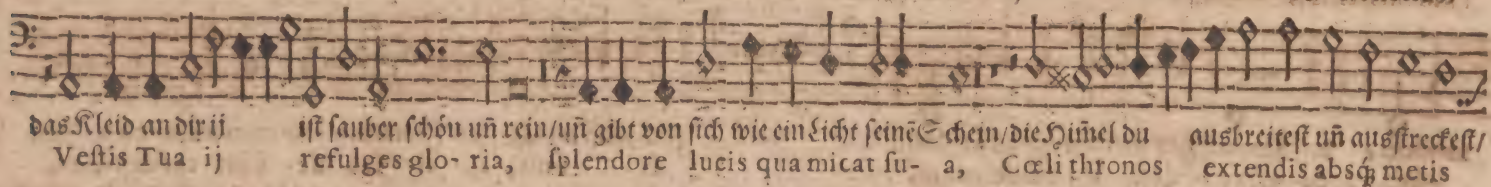 das Kleid an dir ij ist sauber schön uñ rein/uñ gibt von sich wie ein Licht seinē Schein/die Him̃el du ausbreitest uñ ausstreckest/
Vestis Tua ij refulges glo- ria, splendore lucis qua micat su- a, Cœli thronos extendis absq́; metis